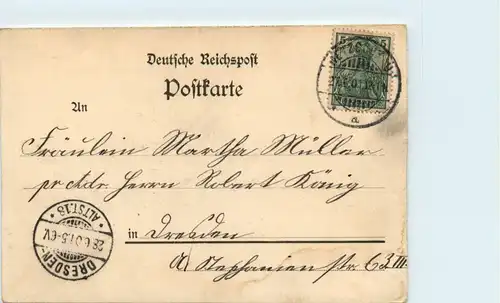 Deutsche Reichspost
Postkarte
An
Fräulein Martha Müller
pr. Adr. Herrn Robert König
in Dresden
A, Stephanien str. 63 III.
5
a
DRESDEN-
ALTST. 16
28.6.01. 5-6V.